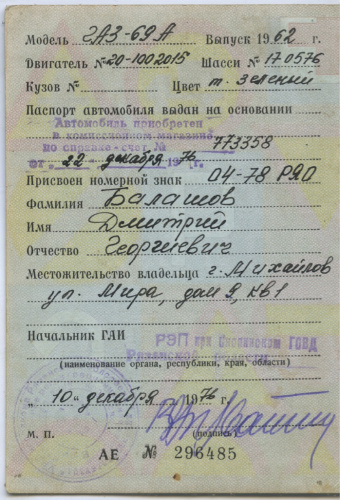 Модель ГАЗ-69А Выпуск 1962 г.
Двигатель № 20-1002015 Шасси № 170576
Кузов № Цвет т. зеленый
Паспорт автомобиля выдан на основании
Автомобиль приобретен
в комиссионном магазине
по справке-счет № 773358
от "22" декабря 1976 г.
Присвоен номерной знак 04-78 РЯО
Фамилия Балашов
Имя Дмитрий
Отчество Георгиевич
Местожительство владельца г. Михайлов
ул. Мира, дом 9, кв 1
Начальник ГАИ РЭП при Скопинском ГОВД
Рязанской области
(наименование органа, республики, края, области)
"10" декабря 1976 г.
М. П. (подпись)
АЕ № 296485